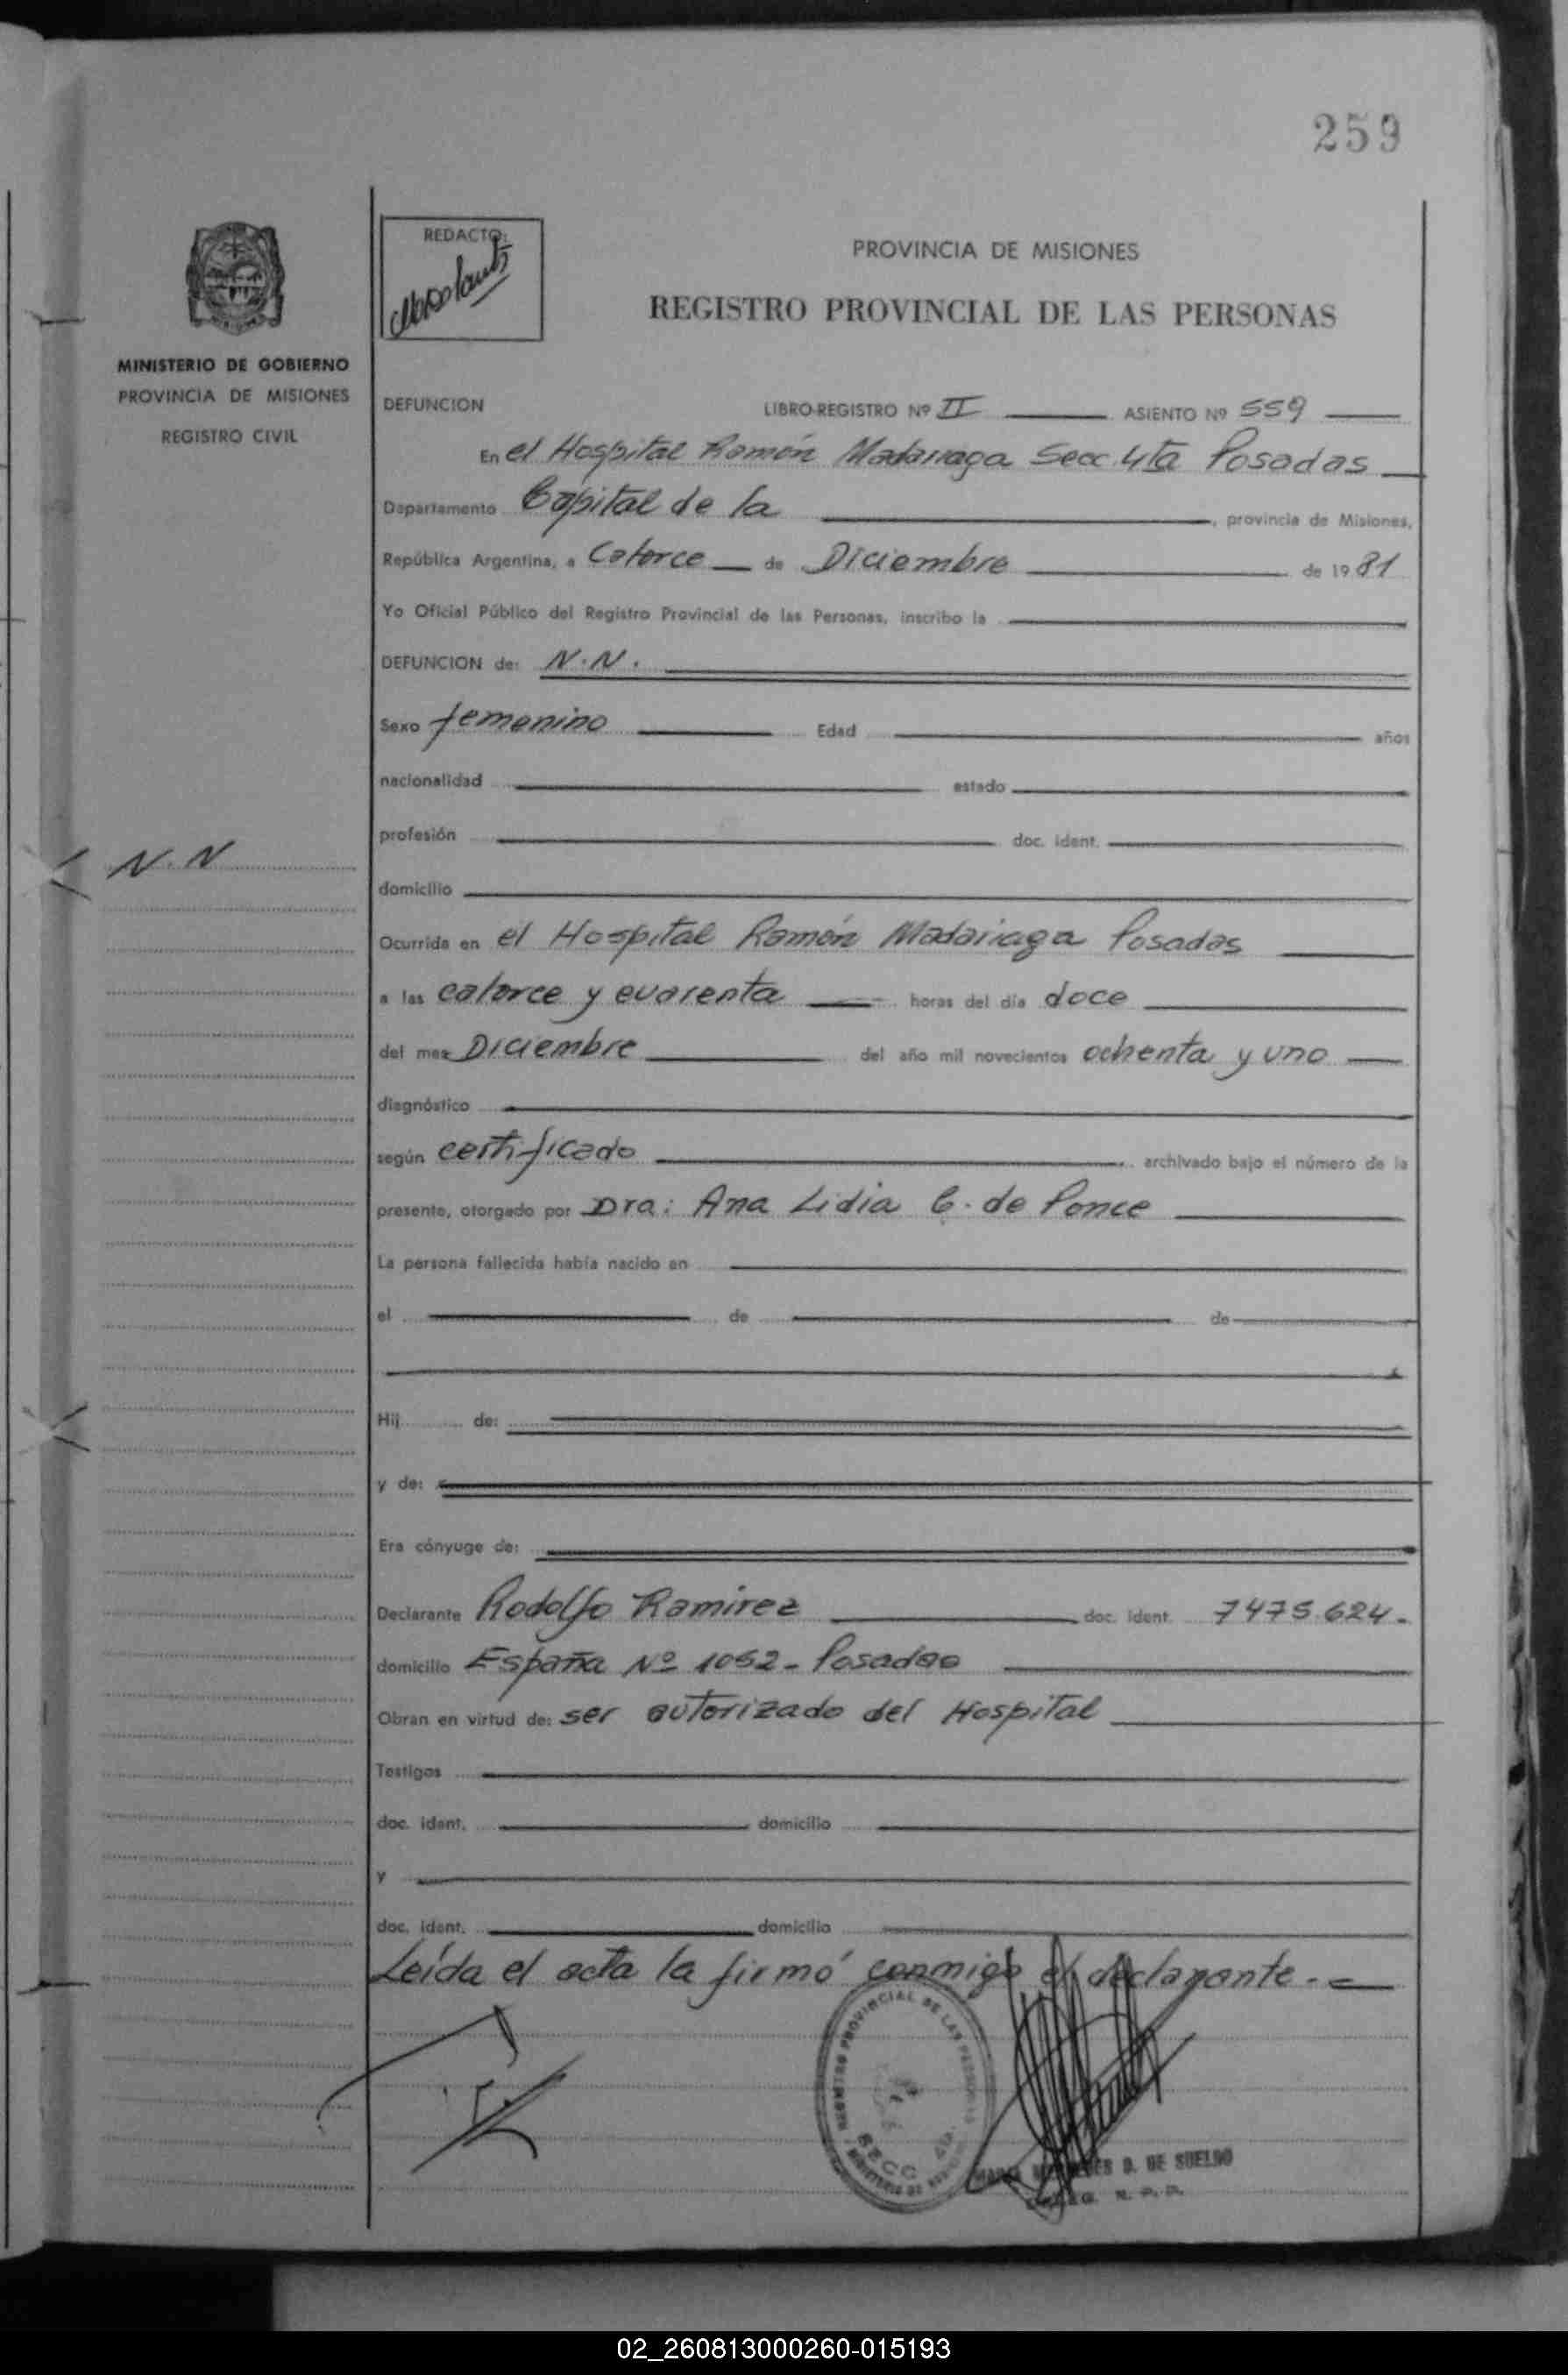 259
REDACTO:
PROVINCIA DE MISIONES
REGISTRO PROVINCIAL DE LAS PERSONAS
MINISTERIO DE GOBIERNO
PROVINCIA DE MISIONES
REGISTRO CIVIL
DEFUNCION LIBRO-REGISTRO Nº II ASIENTO Nº 559
En el Hospital Ramón Madariaga Secc. 4ta Posadas
Departamento Capital de la , provincia de Misiones,
República Argentina, a Catorce de Diciembre de 19 81
Yo Oficial Público del Registro Provincial de las Personas, inscribo la
DEFUNCION de: N.N.
Sexo femenino Edad años
nacionalidad estado
profesión doc. ident.
N.N
domicilio
Ocurrida en el Hospital Ramón Madariaga Posadas
a las catorce y cuarenta horas del día doce
del mes Diciembre del año mil novecientos ochenta y uno
diagnóstico
según certificado archivado bajo el número de la
presente, otorgado por Dra: Ana Lidia C. de Ponce
La persona fallecida había nacido en
el de de
Hij de:
y de:
Era cónyuge de:
Declarante Rodolfo Ramirez doc. ident. 7475.624.
domicilio España Nº 1052 - Posadas
Obran en virtud de: ser autorizado del Hospital
Testigos
doc. ident. domicilio
y
doc. ident. domicilio
Leída el acta la firmó conmigo el declarante.-
REGISTRO PROVINCIAL DE LAS PERSONAS
SECC. 4ta.
D. DE SUELDO
R. P. P.
02_260813000260-015193